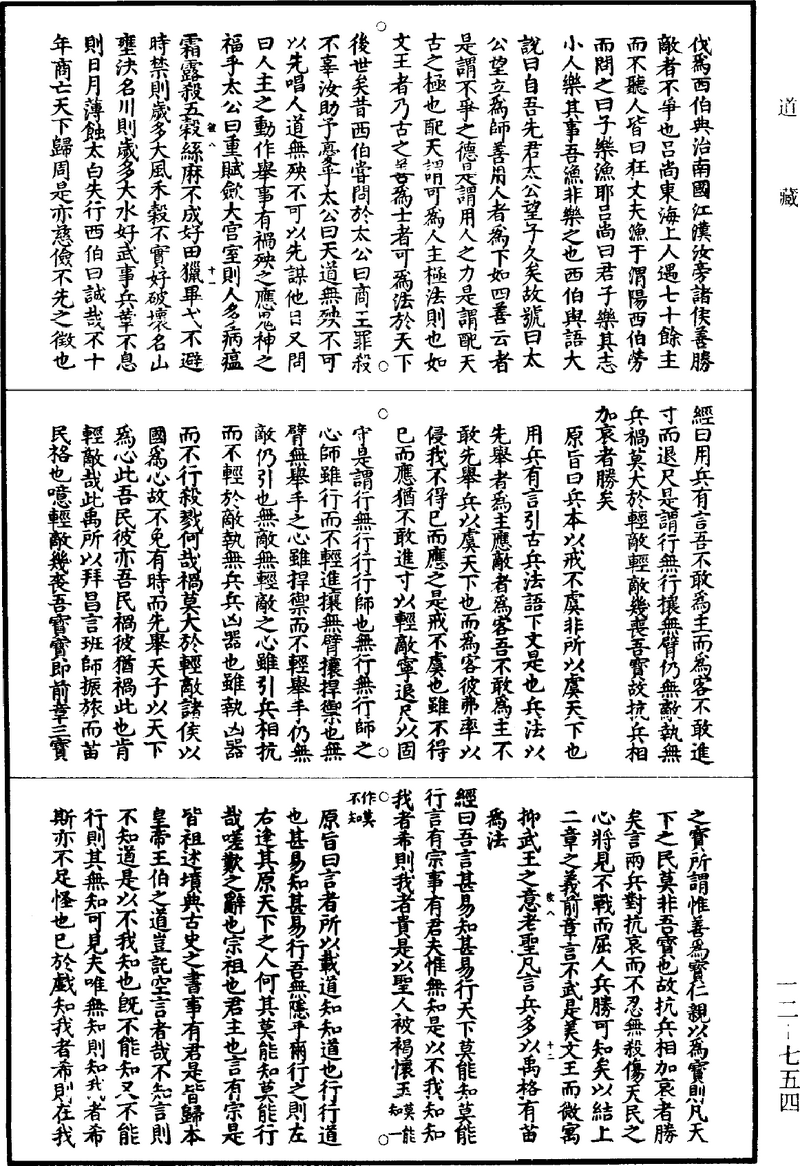 道藏
伐為西伯典治南國江漢汝旁諸侯善勝
敵者不爭也呂尚東海上人遇七十餘主
而不聽人皆曰狂丈夫漁于渭陽西伯勞
而問之曰子樂漁耶呂尚曰君子樂其志
小人樂其事吾漁非樂之也西伯與語大
說曰自吾先君太公望子久矣故號曰太
公望立為師善用人者為下如四善云者
是謂不爭之德是謂用人之力是謂配天
古之極也配天謂可為人主極法則也如
文王者乃古之善為士者可為法於天下
後世矣昔西伯嘗問於太公曰商王罪殺
不辜汝助予憂乎太公曰天道無殃不可
以先唱人道無殃不可以先謀他日又問
曰人主之動作舉事有禍殃之應鬼神之
福乎太公曰重賦斂大宮室則人多病瘟
霜露殺五穀絲麻不成好田獵畢弋不避
時禁則歲多大風禾穀不實好破壞名山
壅決名川則歲多大水好武事兵革不息
則日月薄蝕太白失行西伯曰誠哉不十
年商亡天下歸周是亦慈儉不先之徵也
經曰用兵有言吾不敢為主而為客不敢進
寸而退尺是謂行無行攘無臂仍無敵執無
兵禍莫大於輕敵輕敵幾喪吾寶故抗兵相
加哀者勝矣
原旨曰兵本以戒不虞非所以虞天下也
用兵有言引古兵法語下文是也兵法以
先舉者為主應敵者為客吾不敢為主不
敢先舉兵以虞天下也而為客彼弗率以
侵我不得已而應之是戒不虞也雖不得
已而應猶不敢進寸以輕敵寧退尺以固
守是謂行無行行行師也無行無行師之
心師雖行而不輕進攘無臂攘捍禦也無
臂無舉手之心雖捍禦而不輕舉手仍無
敵仍引也無敵無輕敵之心雖引兵相抗
而不輕於敵執無兵兵凶器也雖執凶器
而不行殺戮何哉禍莫大於輕敵諸侯以
國為心故不免有時而先舉天子以天下
為心此吾民彼亦吾民禍彼猶禍此也肯
輕敵哉此禹所以拜昌言班師振旅而苗
民格也噫輕敵幾喪吾寶寶即前章三寶
之寶所謂惟善為寶仁親以為寶則凡天
下之民莫非吾寶也故抗兵相加哀者勝
矣言兩兵對抗哀而不忍無殺傷天民之
心將見不戰而屈人兵勝可知矣以結上
二章之義前章言不武是美文王而微寓
抑武王之意老聖凡言兵多以禹格有苗
為法
經曰吾言甚易知甚易行天下莫能知莫能
行言有宗事有君夫惟無知是以不我知知
我者希則我者貴是以聖人被褐懷玉莫能知一
作莫不知
原旨曰言者所以載道知知道也行行道
也甚易知甚易行吾無隱乎爾行之則左
右逢其原天下之人何其莫能知莫能行
哉嗟歎之辭也宗祖也君主也言有宗是
皆祖述墳典古史之書事有君是皆歸本
皇帝王伯之道豈託空言者哉不知言則
不知道是以不我知也既不能知又不能
行則其無知可見夫唯無知則知我者希
斯亦不足怪也已於戲知我者希則在我
十一
十二
一二－七五四